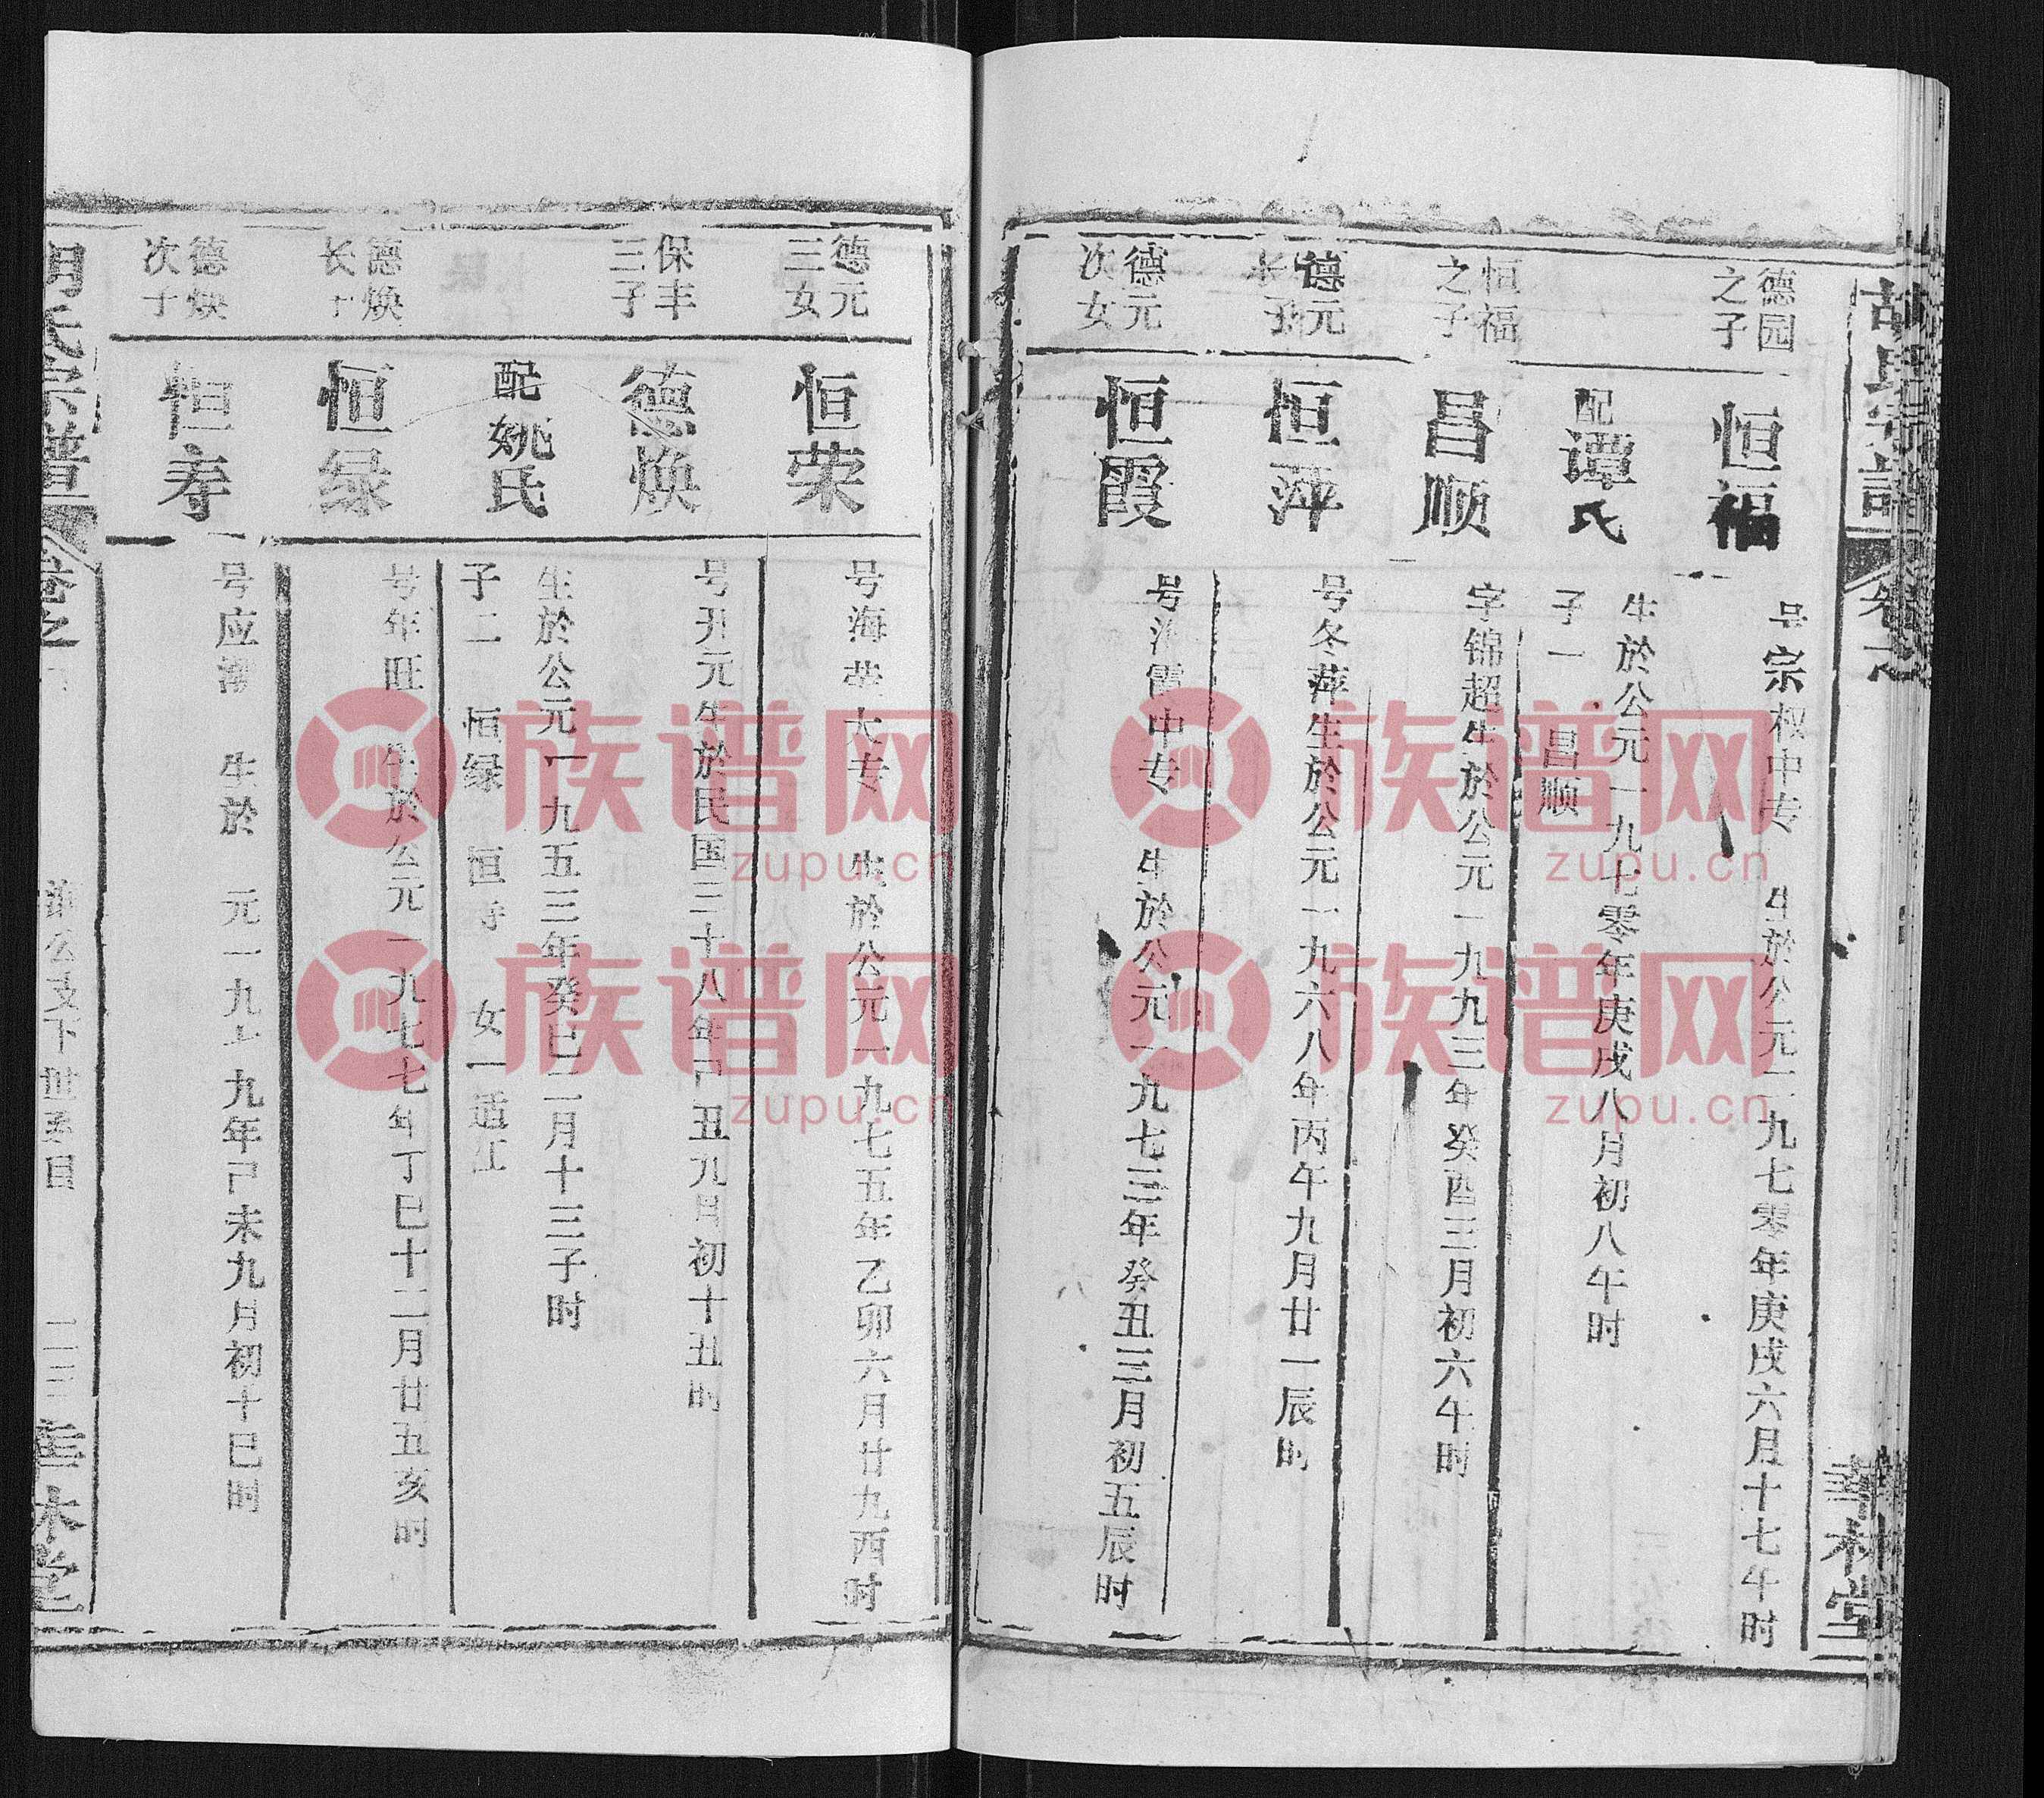 胡氏宗譜
卷之
華林堂
德园
之子
恒福
号宗权中专 生於公元一九七零年庚戌六月十七午时
配谭氏
生於公元一九七零年庚戌八月初八午时
子一 昌顺
恒福
之子
昌顺
字锦超生於公元一九九三年癸酉三月初六午时
德元
长子
恒萍
号冬萍生於公元一九六八年丙午九月廿一辰时
德元
次女
恒霞
号 霞中专 生於公元一九七三年癸丑三月初五辰时
德元
三女
恒荣
号海 大专 生於公元一九七五年乙卯六月廿九酉时
保丰
三子
德焕
号开元生於民国三十八年己丑九月初十丑时
配姚氏
生於公元一九五三年癸巳二月十三子时
子二 恒绿 恒寿 女一适江
德焕
长子
恒绿
号年旺 生於公元一九七七年丁巳十二月廿五亥时
德焕
次子
恒寿
号应 生於 元一九七九年己未九月初十巳时
胡氏宗譜
卷之
公支下世系目
二三
華林堂
族谱网
zupu.cn
族谱网
zupu.cn
族谱网
zupu.cn
族谱网
zupu.cn